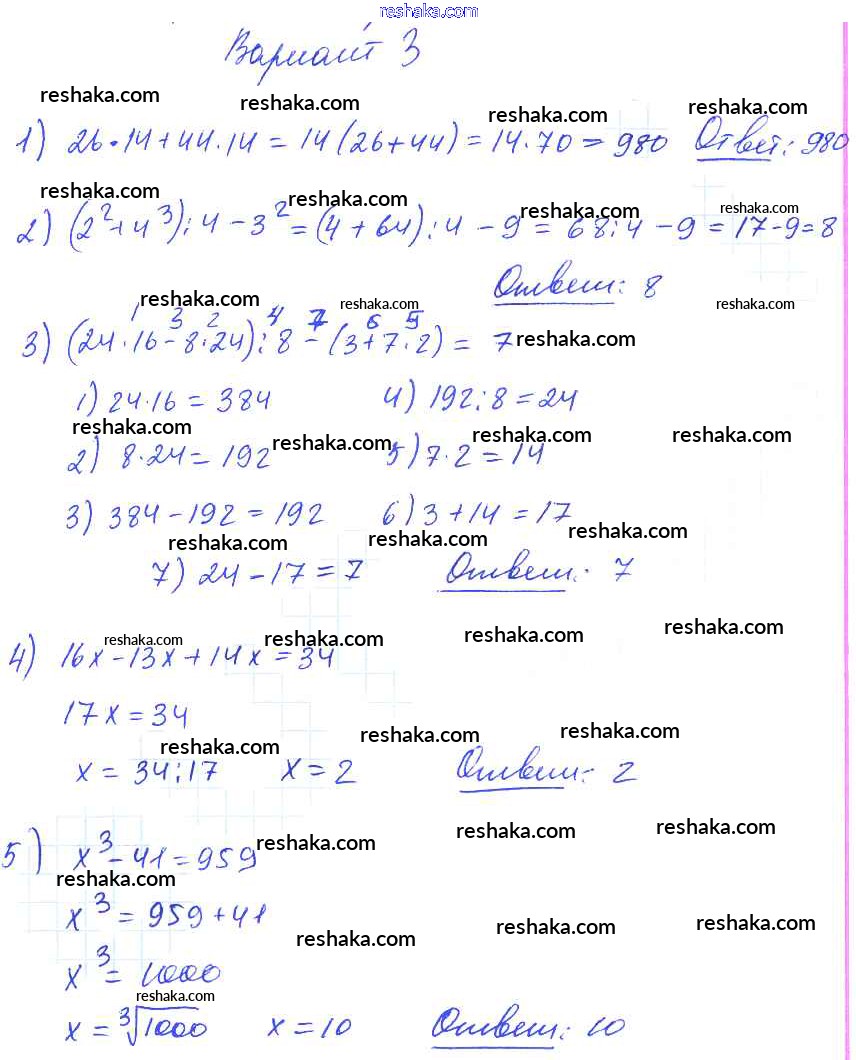 reshaka.com
Вариант 3
reshaka.com reshaka.com reshaka.com reshaka.com
1) 26·14+44·14=14(26+44)=14·70=980 Ответ: 980
reshaka.com reshaka.com reshaka.com reshaka.com
2) (2²+4³):4-3²=(4+64):4-9=68:4-9=17-9=8
Ответ: 8
reshaka.com reshaka.com reshaka.com
1 3 2 4 7 6 5
3) (24·16-8·24):8-(3+7·2)= 7 reshaka.com
1) 24·16=384 4) 192:8=24
reshaka.com reshaka.com reshaka.com reshaka.com
2) 8·24=192 5) 7·2=14
3) 384-192=192 6) 3+14=17
reshaka.com reshaka.com reshaka.com
7) 24-17=7 Ответ: 7
reshaka.com reshaka.com reshaka.com reshaka.com
4) 16x-13x+14x=34
17x=34
reshaka.com reshaka.com reshaka.com
x=34:17 x=2 Ответ: 2
reshaka.com reshaka.com reshaka.com
5) x³-41=959
reshaka.com
x³=959+41
reshaka.com reshaka.com reshaka.com
x³=1000
reshaka.com
x=³√1000 x=10 Ответ: 10